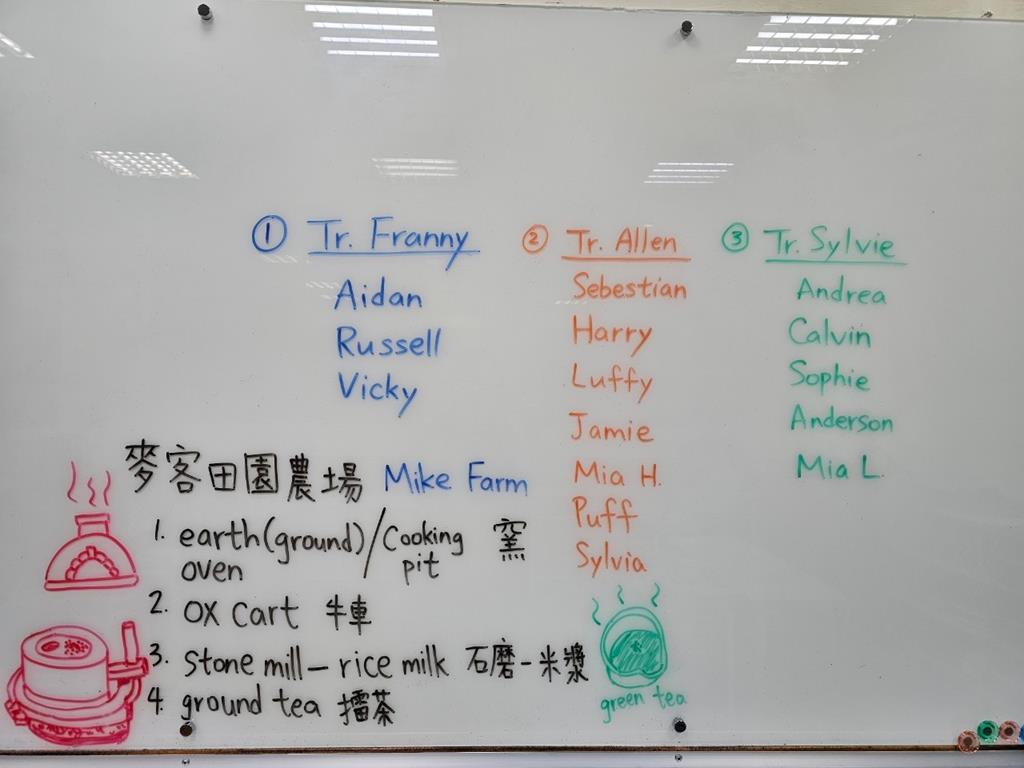 ① Tr. Franny
Aidan
Russell
Vicky
② Tr. Allen
Sebestian
Harry
Luffy
Jamie
Mia H.
Puff
Sylvia
③ Tr. Sylvie
Andrea
Calvin
Sophie
Anderson
Mia L.
麥客田園農場 Mike Farm
1. earth(ground)/Cooking 窯
oven pit
2. ox cart 牛車
3. stone mill – rice milk 石磨-米漿
4. ground tea 擂茶
green tea